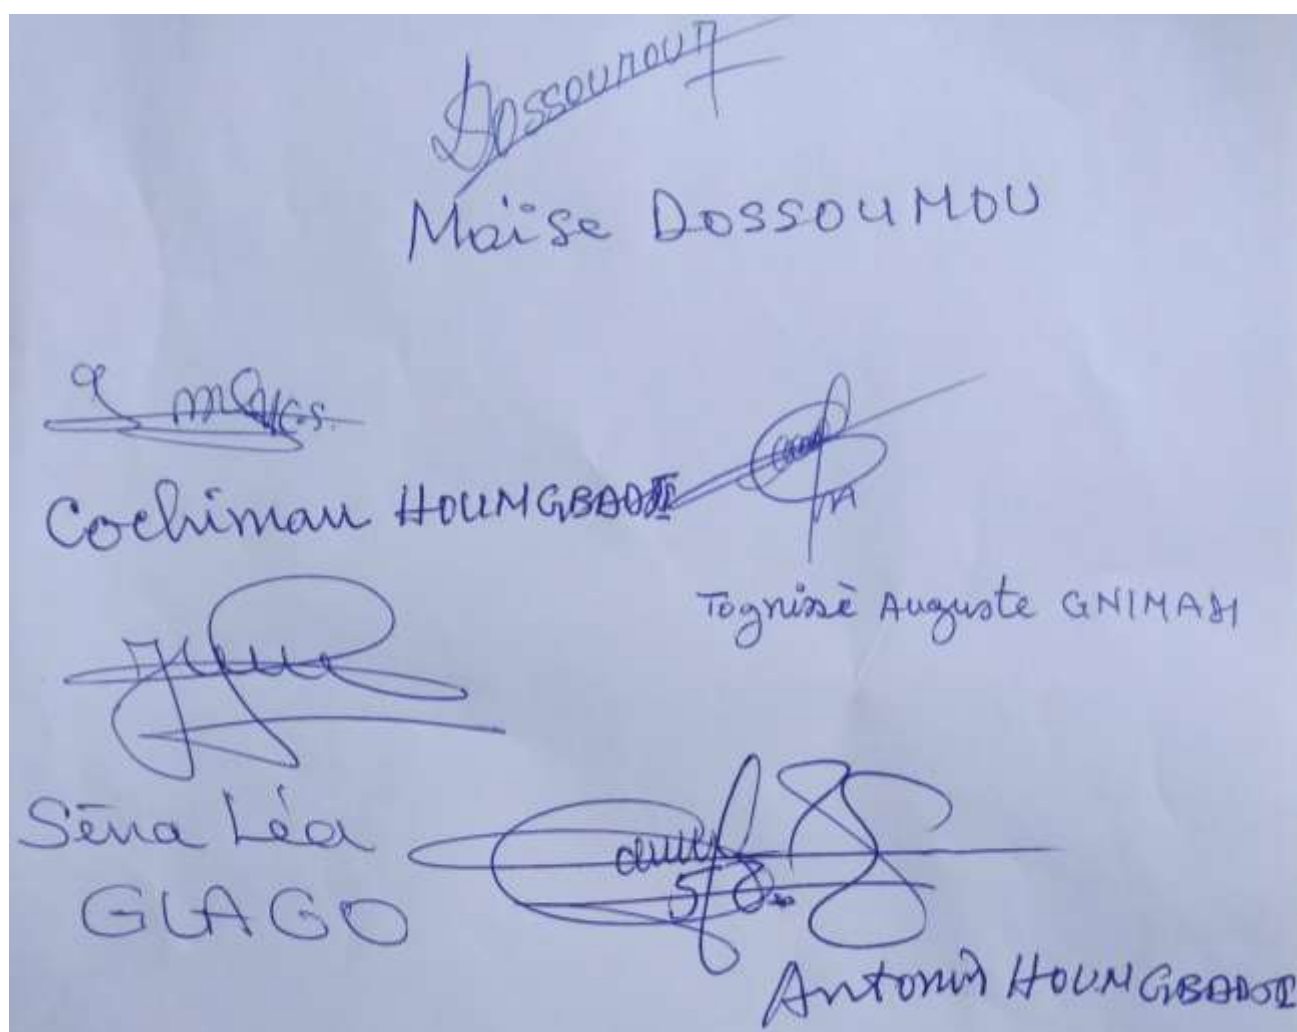 Dossoumou
Moïse DOSSOUMOU
Cochimau HOUNGBADJI
Tognissè Auguste GNIMADI
Sèna Léa
GLAGO
Antonin HOUNGBADJI